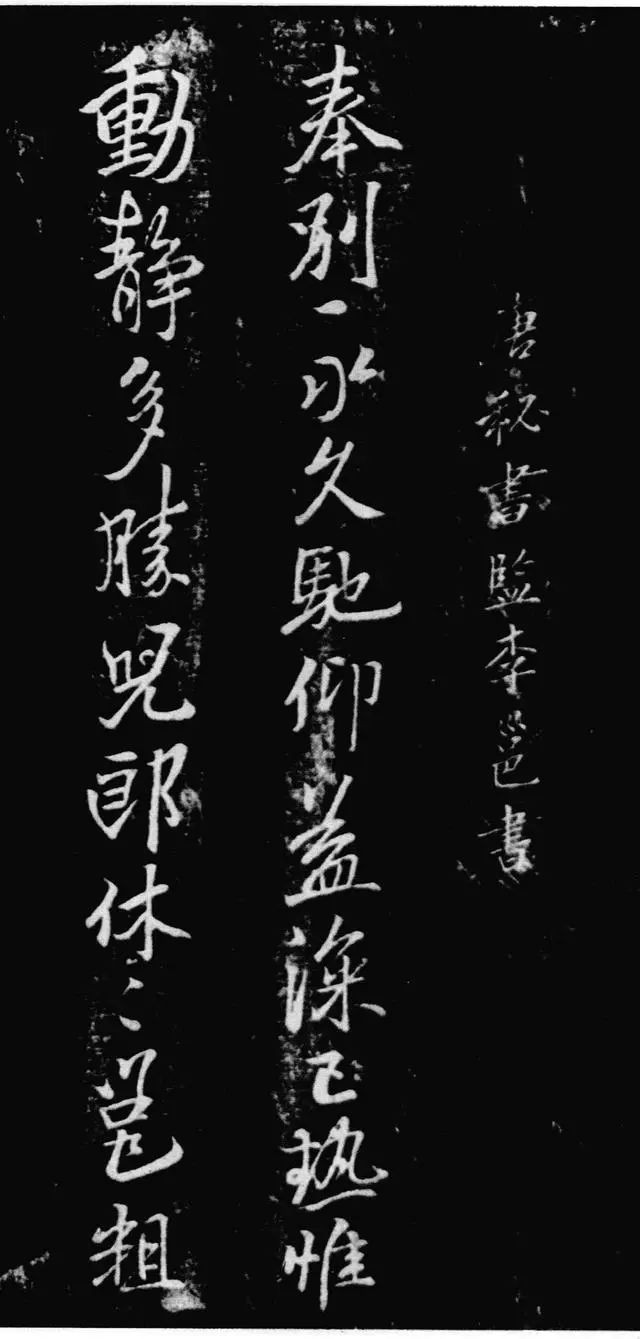 唐秘書監李邕書
奉別一永久馳仰益深已熱惟
動靜多勝兒郎休〻邕粗